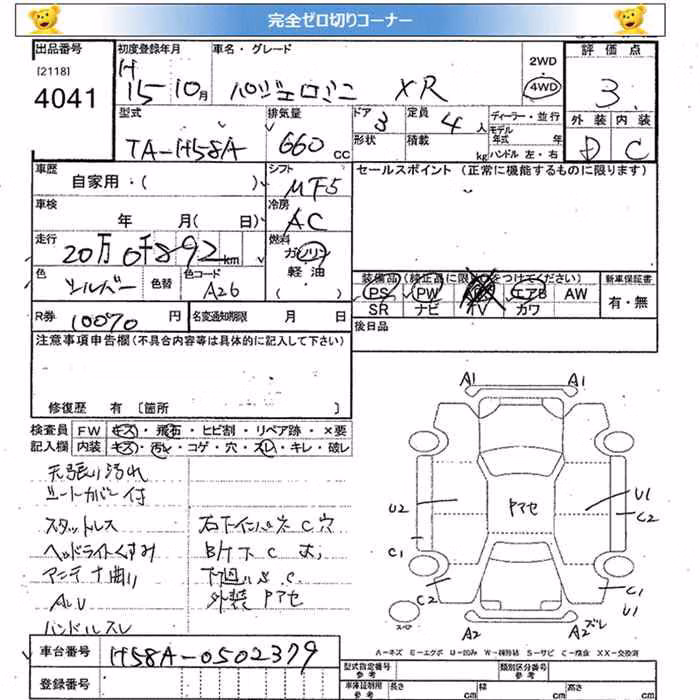 完全ゼロ切りコーナー
出品番号 初度登録年月 車名・グレード 2WD 評価点
[2118] H 4WD
4041 15-10月 パジェロミニ XR 3
型式 排気量 ドア 定員 ディーラー・並行 外装 内装
TA-H58A 660cc 3 4人 モデル年式 年 D C
形状 積載 kg ハンドル 左・右
車歴 シフト セールスポイント (正常に機能するものに限ります)
自家用・( ) MF5
車検 冷房
年 月( 日) AC
走行 燃料
20万0千892km ガソリン
色 色替 色コード 軽油
シルバー A26 ( )
装備品(純正品に限り○をつけてください) 新車保証書
PS PW エアB AW 有・無
SR ナビ TV カワ
R券 10070円 名変通知期限 月 日 後日品
注意事項申告欄(不具合内容等は具体的に記入して下さい)
修復歴 有 [箇所 ]
検査員 FW キズ・飛石・ヒビ割・リペア跡・×要
記入欄 内装 キズ・汚れ・コゲ・穴・スレ・キレ・破レ
天張り汚れ
シートカバー付
スタットレス
ヘッドライトくすみ
アンテナ曲り
AW
ハンドルスレ
C穴
下廻り S C
外装 Pアセ
A1 A1
U2 Pアセ U1
C2
C1
C2 C1
U1
スペア A2 A2 ズレ
A-キズ E-エクボ U-凹み W-補修跡 S-サビ C-腐食 XX-交換済
車台番号 H58A-0502379
型式指定番号 参考 類別区分番号 参考
登録番号
車庫証明用 参考 長さ cm 幅 cm 高さ cm